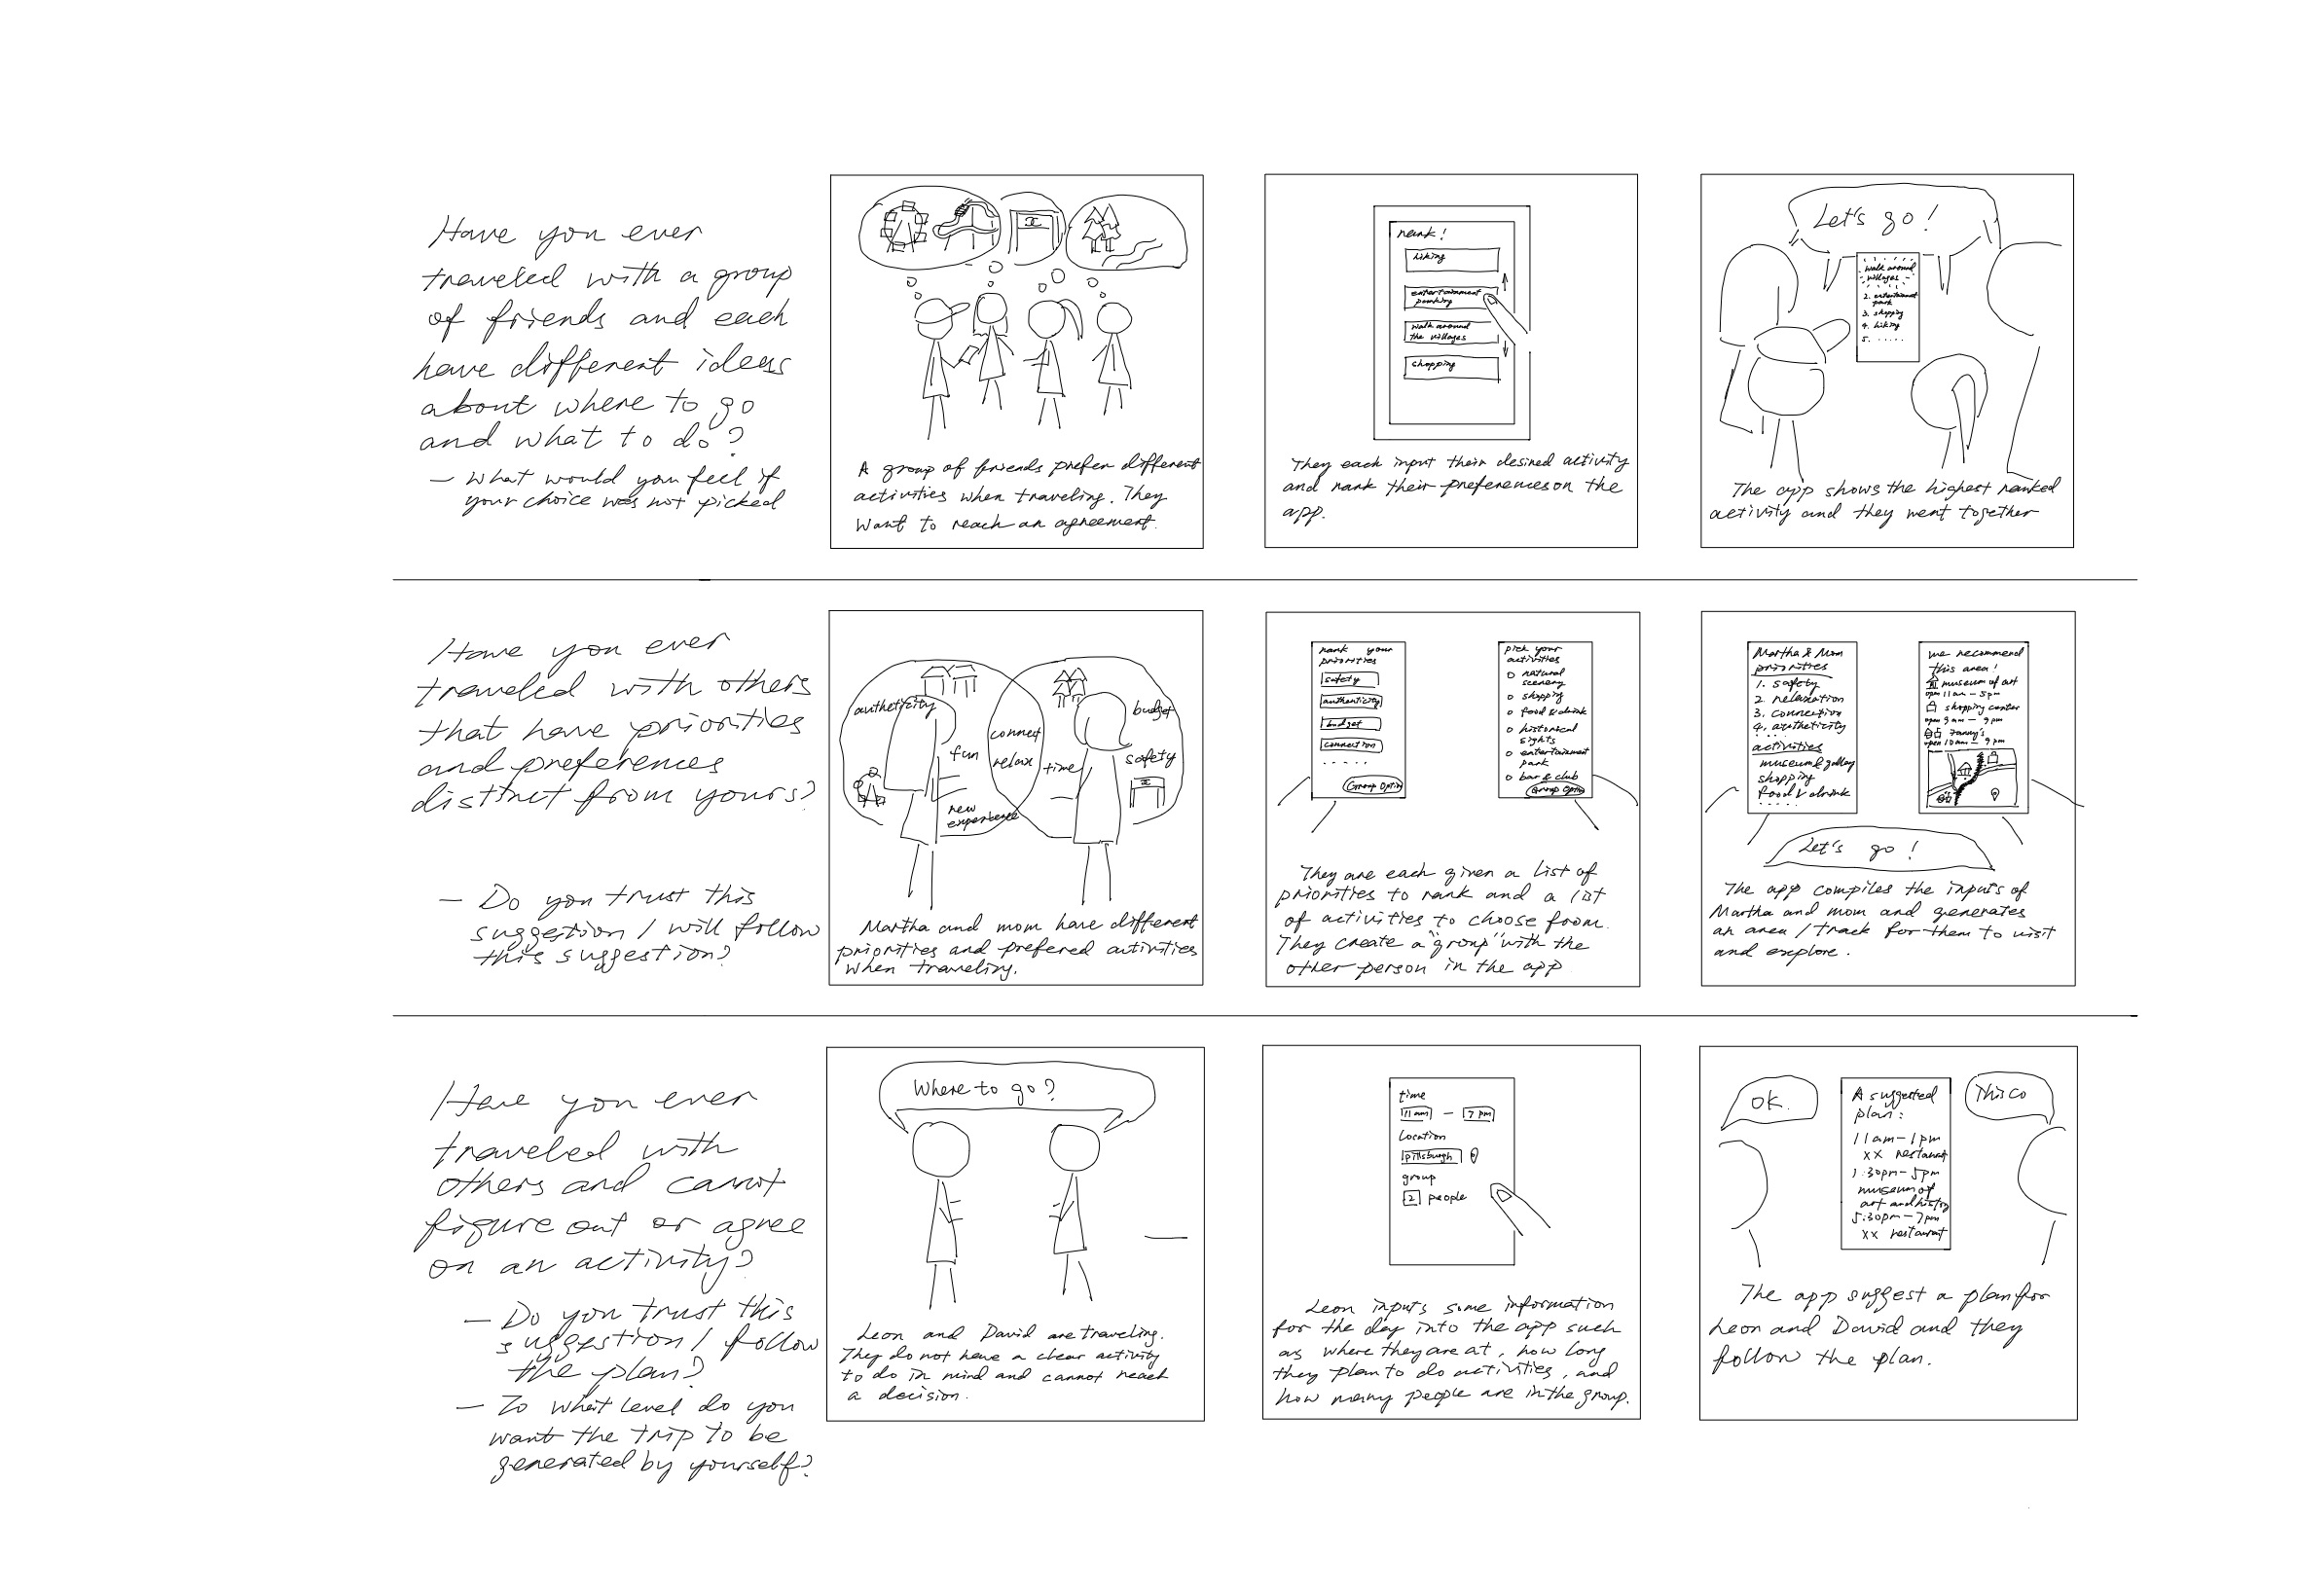 Have you ever
traveled with a group
of friends and each
have different ideas
about where to go
and what to do?
- What would you feel if
your choice was not picked
A group of friends prefer different
activities when traveling. They
want to reach an agreement.
rank!
hiking
entertainment
walk around
the villages
shopping
They each input their desired activity
and rank their preferences on the
app.
Let's go!
walk around
villages
2. entertainment
park
3. shopping
4. hiking
5. .....
The app shows the highest ranked
activity and they went together
Have you ever
traveled with others
that have priorities
and preferences
distinct from yours?
- Do you trust this
suggestion / will follow
this suggestion?
autheticity
fun
new
experience
connect
relax
time
budget
safety
Martha and mom have different
priorities and prefered activities
when traveling.
rank your
priorities
safety
authenticity
budget
connection
.....
Group Option
pick your
activities
natural
scenery
shopping
food & drink
historical
sights
entertainment
park
bar & club
Group Option
They are each given a list of
priorities to rank and a list
of activities to choose from.
They create a "group" with the
other person in the app
Martha & Mom
priorities
1. safety
2 relaxation
3. connection
4. autheticity
.....
activities
museum & gallery
shopping
food & drink
.....
we recommend
this area!
museum of art
open 11am - 5pm
shopping center
open 9am - 9pm
open 10am - 9pm
Let's go!
The app compiles the inputs of
Martha and mom and generates
an area / track for them to visit
and explore.
Have you ever
traveled with
others and cannot
figure out or agree
on an activity?
- Do you trust this
suggestion / follow
the plan?
- To what level do you
want the trip to be
generated by yourself?
Where to go?
Leon and David are traveling.
They do not have a clear activity
to do in mind and cannot reach
a decision.
time
11am - 7pm
Location
pittsburgh
group
2 people
Leon inputs some information
for the day into the app such
as where they are at, how long
they plan to do activities, and
how many people are in the group.
OK.
A suggested
plan:
11am-1pm
xx restaurant
1:30pm-5pm
museum of
art and history
5:30pm-7pm
xx restaurant
The app suggest a plan for
Leon and David and they
follow the plan.